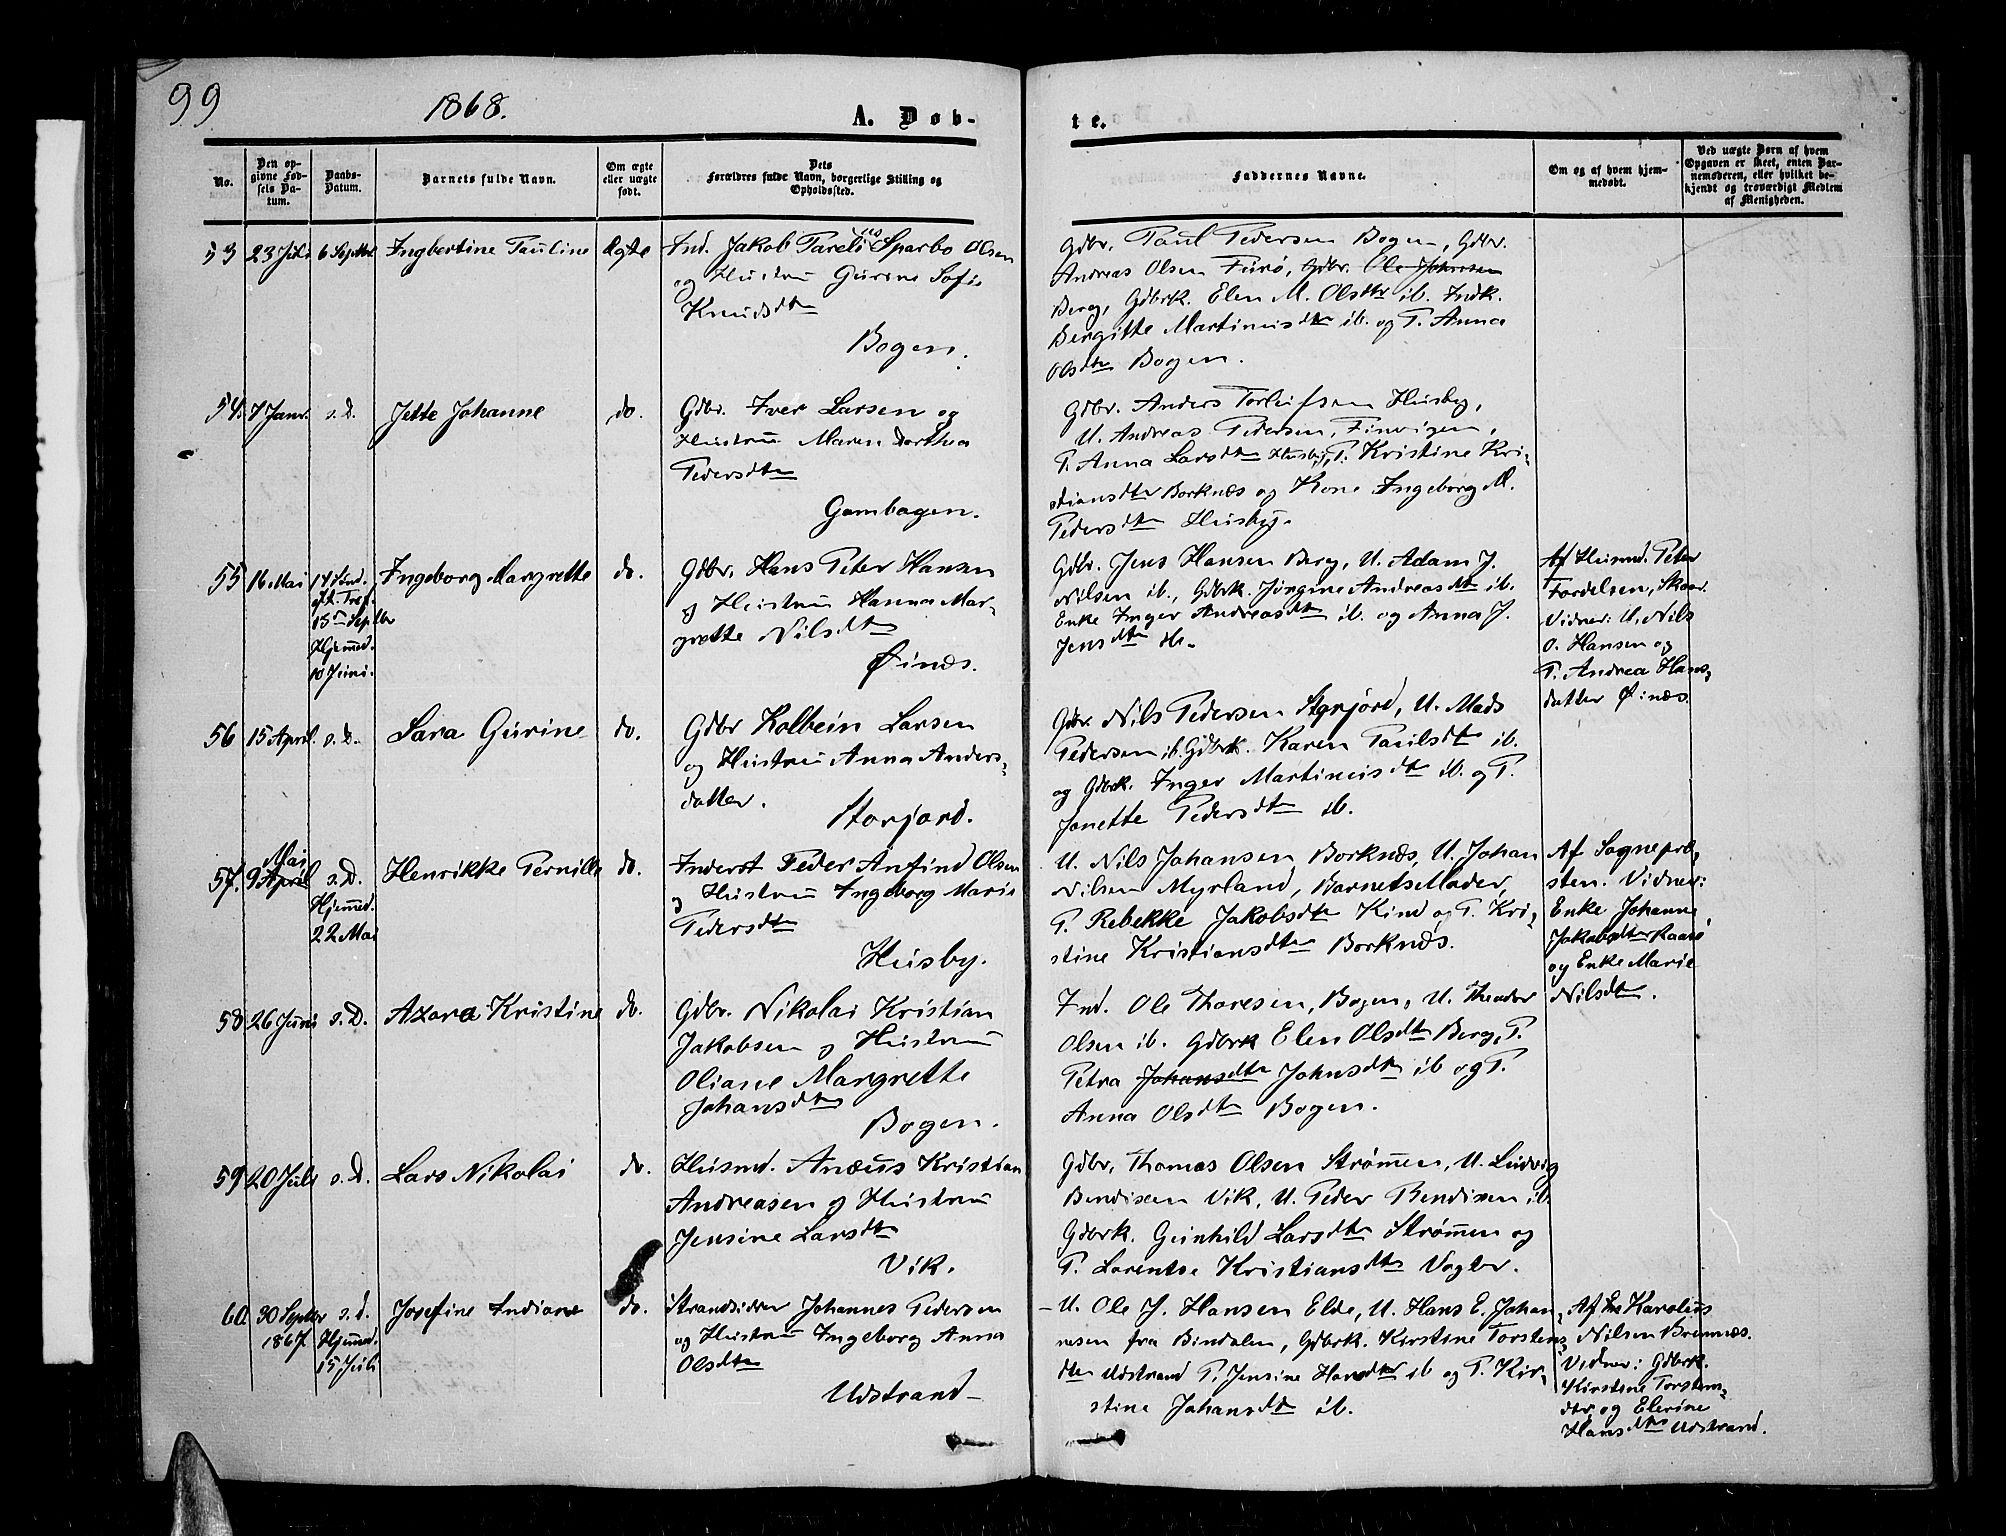 99
1868.
A. Døb-
te.
No.
Den op-
givne Fød-
sels Da-
tum.
Daabs-
Datum.
Barnets fulde Navn.
Om ægte
eller uægte
født.
Dets
Forældres fulde Navn, borgerlige Stilling og
Opholdssted.
Faddernes Navne.
Om og af hvem hjem-
medøbt.
Ved uægte Børn af hvem
Opgaven er skeet, enten Bar-
nemoderen, eller hvilket be-
kjendt og troværdigt Medlem
af Menigheden.
53
23 Juli
6 Septbr
Ingbertine Pauline
Ægte
Ind. Jakob Parelius Sparbo Olsen
og Hustru Gurine Sofie
Knudsdtr
Bogen.
Gdbr. Paul Pedersen Bogen, Gdbr.
Andreas Olsen Furø, Gdbr. Ole Johnsen
Berg, Gdbrk. Elen M. Olsdtr ib. Indk.
Bergitte Martinusdtr ib. og P. Anna
Olsdtr Bogen.
54
7 Janr.
s. D.
Jette Johanne
do.
Gdbr. Iver Larsen og
Hustru Maren Dorthea
Pedersdtr
Gambogen.
Gdbr. Anders Torleifsen Husby,
U. Andreas Pedersen, Finvigen,
P. Anna Larsdtr Husby, P. Kristine Kri-
stiansdtr Borknæs og Kone Ingeborg M.
Pedersdtr Husby.
55
16 Mai
14 Sønd.
eft. Tref.
13de Septbr
Hjemmed.
10 Juni.
Ingeborg Margrette
do.
Gdbr. Hans Peter Hansen
og Hustru Hanna Mar-
grette Nilsdtr
Øinæs.
Gdbr. Jens Hansen Berg, U. Adam J.
Nilsen ib., Gdbrk. Jørgine Andreasdtr ib.
Enke Inger Andreasdtr ib. og Anna J.
Jensdtr ib.
Af Husmd. Peter
Tordelsen, Skaar.
Vidner: U. Nils
O. Hansen og
P. Andrea Hans-
datter Øinæs.
56
15 April
s. D.
Sara Gurine
do.
Gdbr Kolbein Larsen
og Hustru Anna Anders-
datter.
Storjord.
Gdbr. Nils Pedersen Storjord, U. Mads
Pedersen ib. Gdbrk. Karen Paulsdtr ib.
og Gdbrk. Inger Martinusdtr ib. og P.
Janette Pedersdtr ib.
57.
Mai
9 April
s. D.
Hjemmed.
22 Mai
Henrikke Pernille
do.
Inderst Peder Anfind Olsen
og Hustru Ingeborg Marie
Pedersdtr
Husby.
U. Nils Johansen Borknæs, U. Johan
Nilsen Myrland, Barnets Moder,
P. Rebekke Jakobsdtr Kind og P. Kri-
stine Kristiansdtr Borknæs.
Af Sognepræ-
sten. Vidner:
Enke Johanne
Jakobsdtr
og Enke Marie
Nilsdtr.
58
26 Juni
s. D.
Azora Kristine
do.
Gdbr. Nikolai Kristian
Jakobsen og Hustru
Oliane Margrette
Johansdtr
Bogen.
Ind. Ole Thoresen, Bogen, U. Theodor
Olsen ib. Gdbrk Elen Olsdtr Berg, P.
Petra Johansdtr Johnsdtr ib og P.
Anna Olsdtr Bogen.
59
20 Juli
s. D.
Lars Nikolai
do.
Husmd. Anæus Kristian
Andreasen og Hustru
Jensine Larsdtr
Vik.
Gdbr. Thomas Olsen Strømmen, U. Ludvig
Bendixen Vik, U. Peder Bendixen ib.
Gdbrk. Gunhild Larsdtr Strømmen og
P. Larentse Kristiansdtr Vogler.
60
30 Septbr
1867.
s. d.
Hjemmed.
15 Juli
Josefine Indiane
do.
Strandsidder Johannes Pedersen
og Hustru Ingeborg Anna
Olsdtr
Udstrand
U. Ole J. Hansen Elde, U. Hans E. Johan-
nesen fra Bindalen, Gdbrk. Kirstine Torstens-
dtr Udstrand P. Jensine Hansdtr ib og P. Kir-
stine Johansdtr ib.
Af Karolius
Nilsen Brennæs.
Vidner: Gdbrk.
Kirstine Torstens-
dtr, og Elerine
Hansdtr Udstrand.